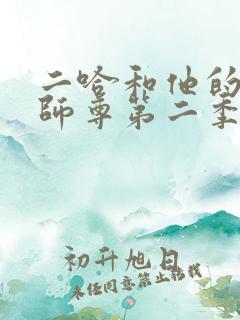 二哈和他的
師尊第二季
初升旭日
未经同意禁止转载